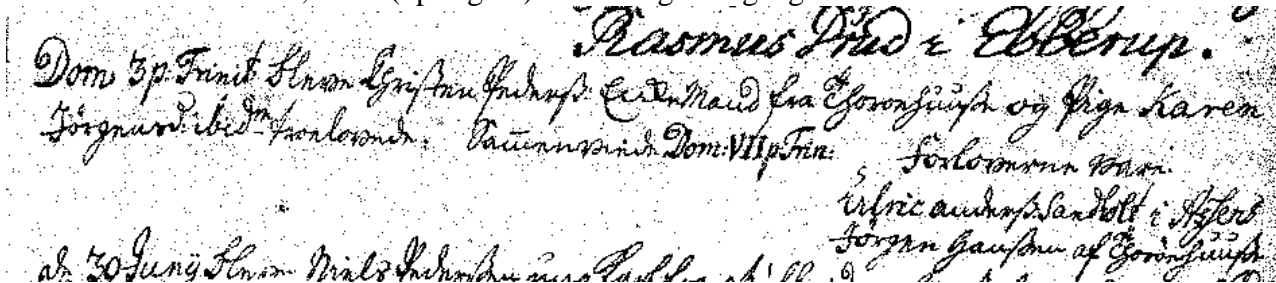 Rasmus Prud i Ebberup.
Dom 3 p. Trinit bleve Christen Pederß: EnkeMand fra Thoröehuuse og Pige Karen
Jörgensd: ibidm troelovede. Sammenviede Dom: VII p. Trin:
Forloverne vare.
Ulric Anderß: Sandholt i Assens
Jörgen Hanßen af Thoröehuuse
d. 30 Junÿ bleve Niels Pederßen